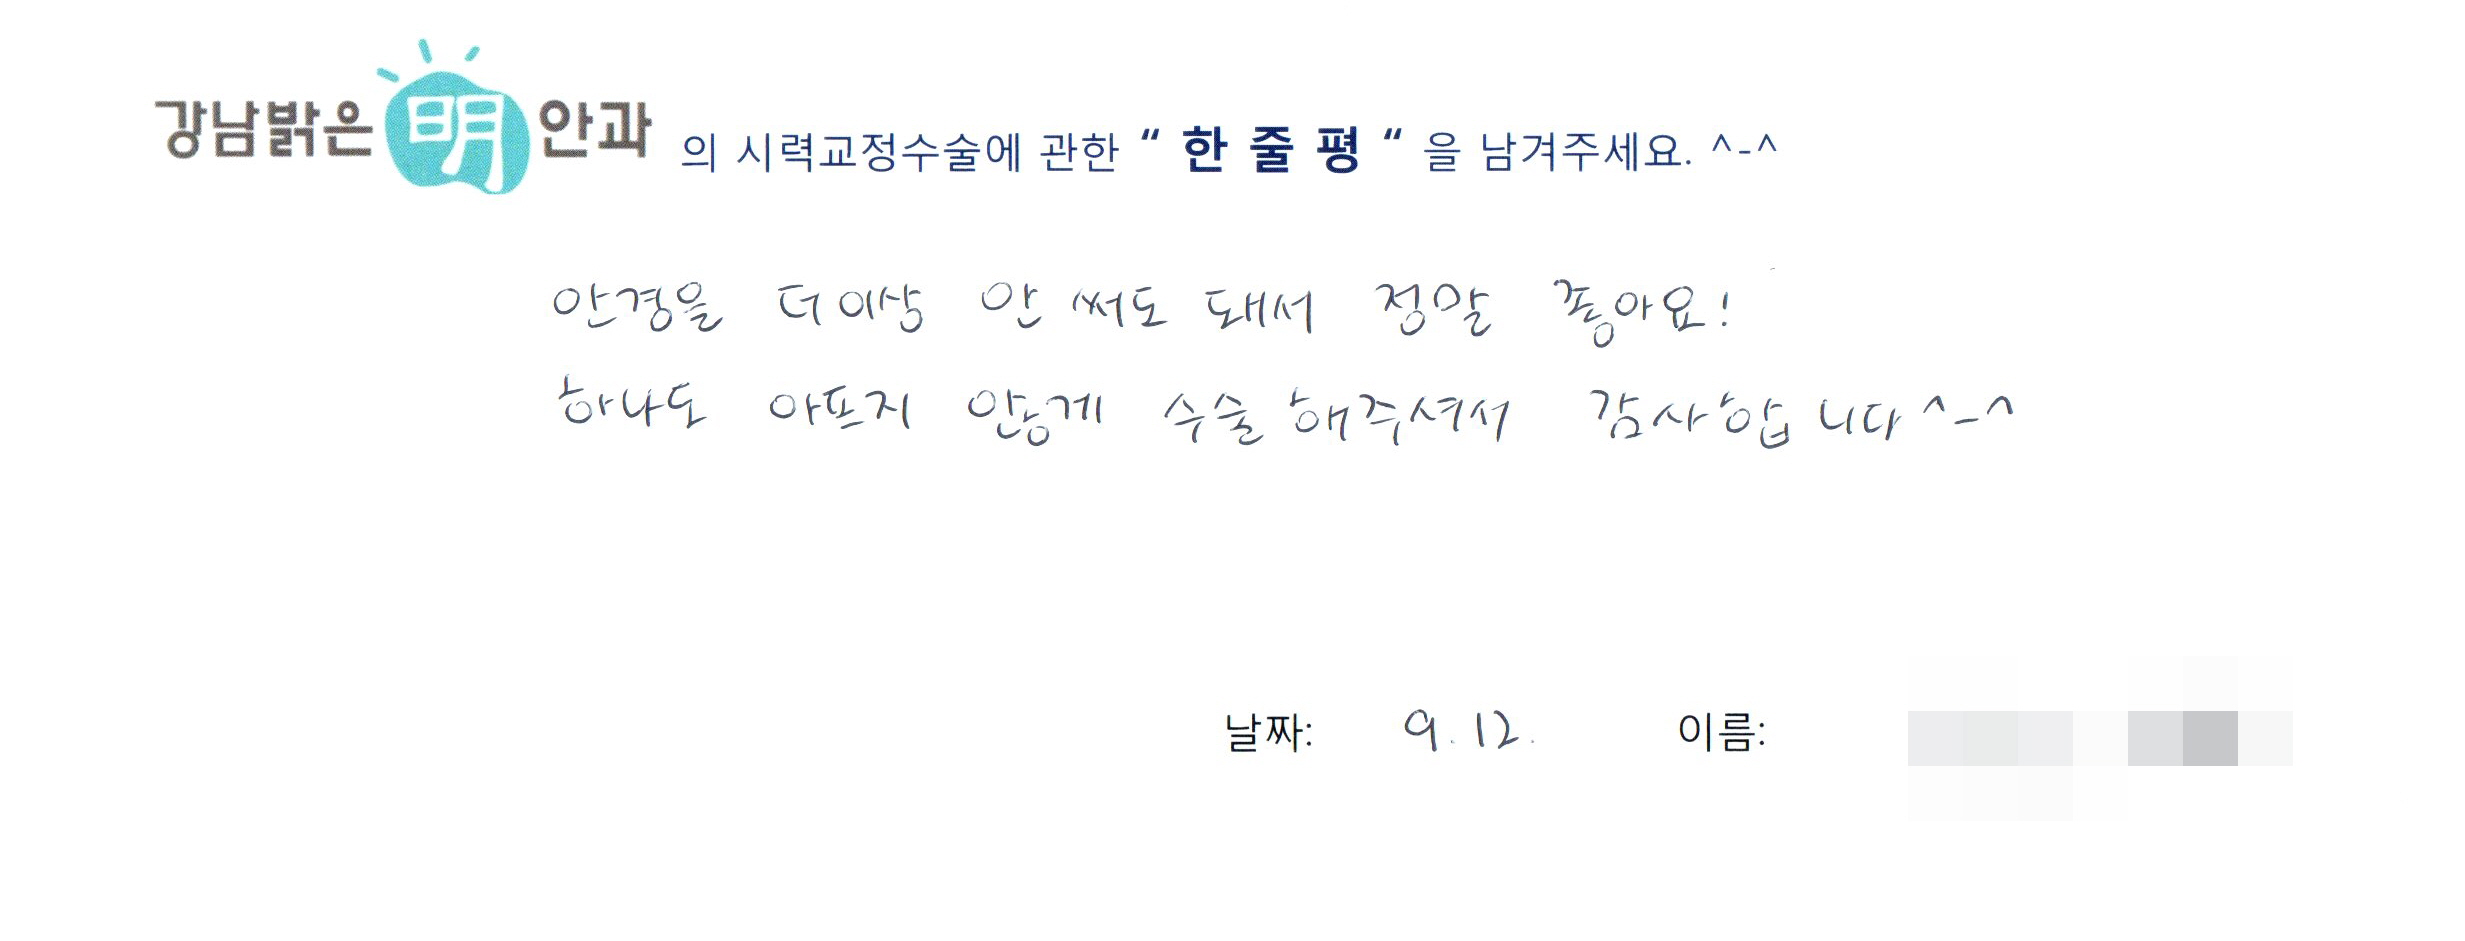 강남밝은明안과 의 시력교정수술에 관한 “ 한 줄 평 “ 을 남겨주세요. ^-^
안경을 더이상 안 써도 돼서 정말 좋아요!
하나도 아프지 않게 수술해주셔서 감사합니다^-^
날짜: 9.12. 이름: